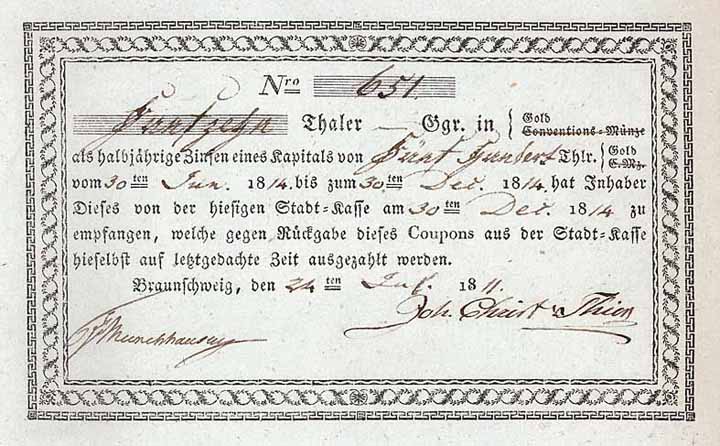 Nro 651.
Funfzehn Thaler — Ggr. in { Gold
Conventions-Münze
als halbjährige Zinsen eines Kapitals von Fünf Hundert Thlr. { Gold
C. Mz.
vom 30ten Jun. 1814. bis zum 30ten Dec. 1814. hat Inhaber
Dieses von der hiesigen Stadt-Kasse am 30ten Dec. 1814 zu
empfangen, welche gegen Rückgabe dieses Coupons aus der Stadt-Kasse
hieselbst auf letztgedachte Zeit ausgezahlt werden.
Braunschweig, den 24ten 1811.
Joh. Christ. Thies
Münchhausen